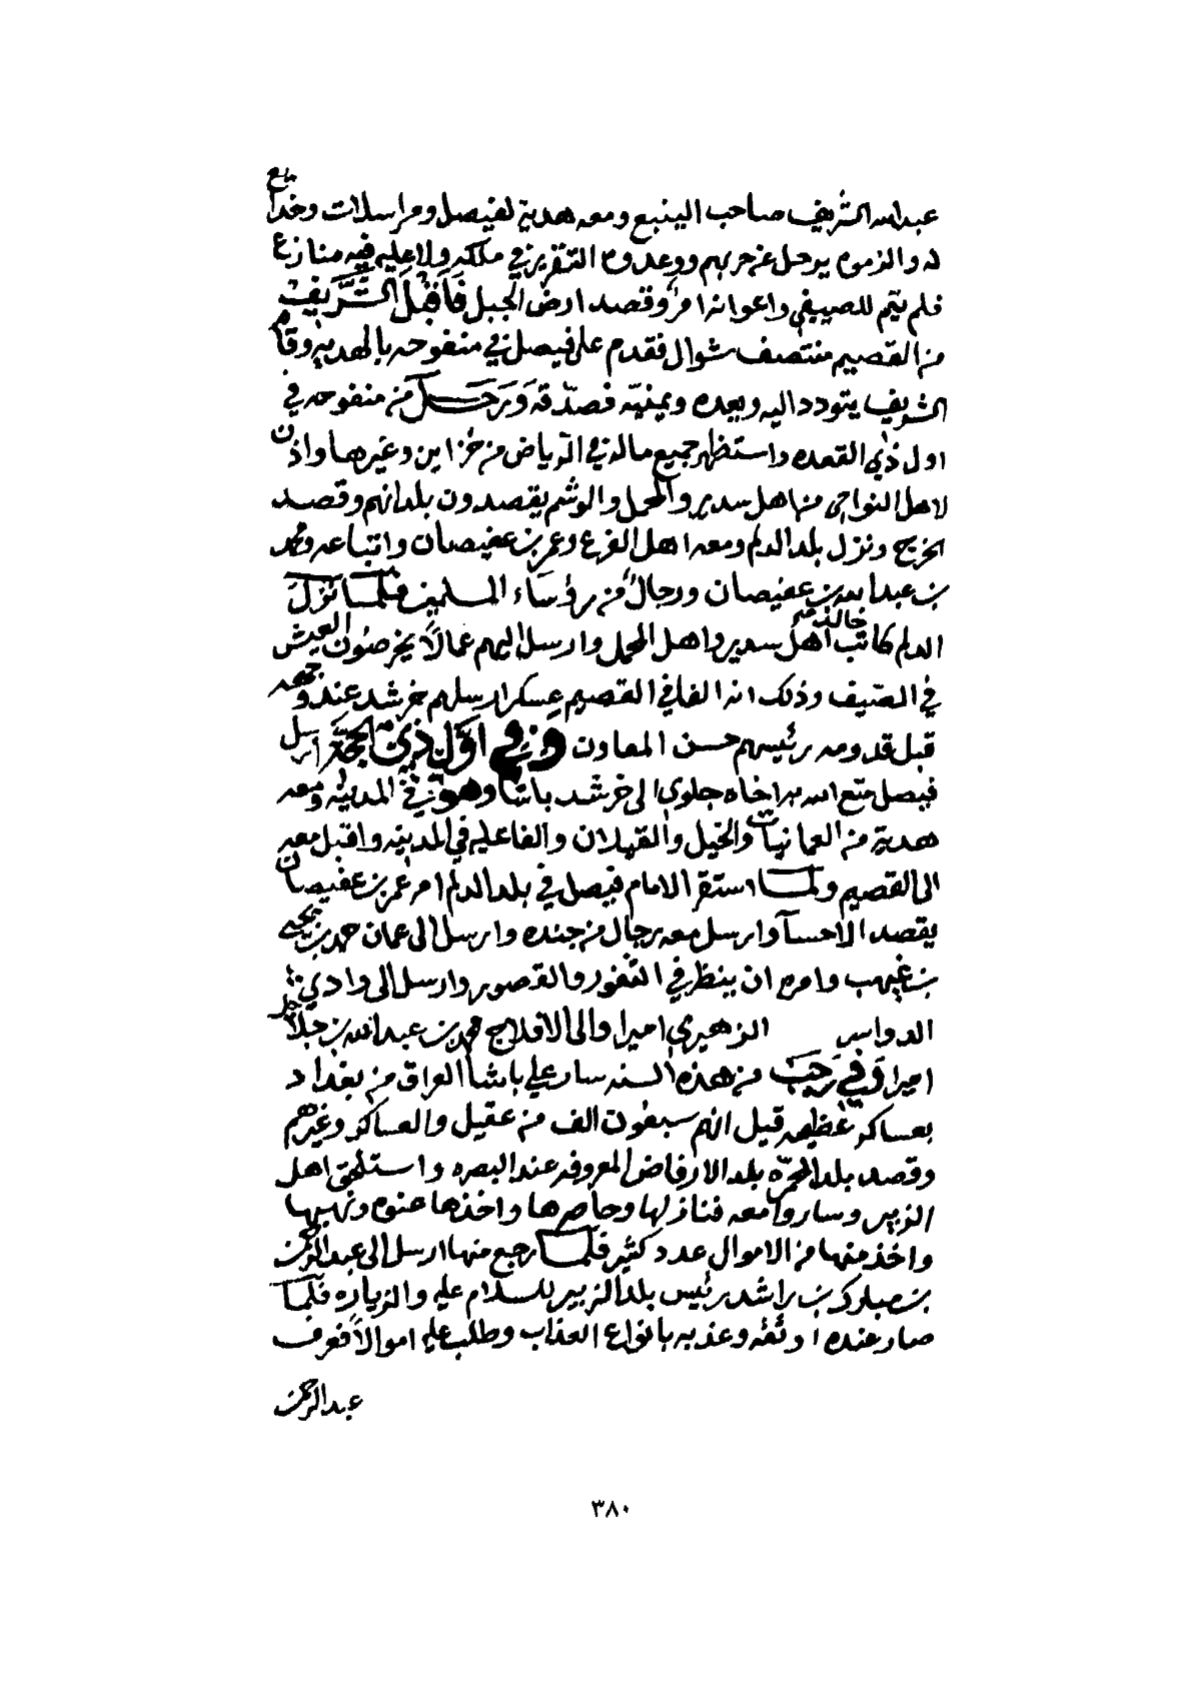 عبدالله الشريف صاحب الينبع ومعه هدية لفيصل ومراسلات وخدايع
له والزموه يرحل عن حربهم ووعدوه التقرير في ملكه ولا عليه فيه منازع
فلم يتم للصيفي واعوانه امر وقصد ارض الجبل فَاَقْبَلَ الشَّرِيفُ
من القصيم منتصف شوال فقدم على فيصل في منفوحه بالهديه وقام
الشريف يتودد اليه ويعده ويمنيّه فصدّقه وَرَحَلَ من منفوحه في
اول ذي القعده واستظهر جميع ماله في الرياض من خزاين وغيرها واذن
لاهل النواحي من اهل سدير والمحمل والوشم يقصدون بلدانهم وقصد
الخرج ونزل بلد الدلم ومعه اهل الفرع وعمر بن عفيصان واتباعه ومحمد
بن عبدالله بن عفيصان ورجالٌ من رؤسَاء المسلمين فلمّا نَزَلَ
الدلم كاتب خالد اهل سدير واهل المحمل وارسل اليهم عمالًا يخرصُون العيش
في الصّيف وذلك انه الفا في القصيم عسكر ارسلهم خرشد عنده وجمعه
قبل قدومه رئيسهم حسن المعاون وَفي اوّل ذيْ الحجّة ارسل
فيصل متع الله به اخاه جلوي الى خرشد باشا وهو في المدينه ومعه
هدية من العمانيات والخيل والقيلان والفا عليه في المدينه واقبل معه
الى القصيم ولمّا استقر الامام فيصل في بلد الدلم امر عمر بن عفيصان
يقصد الاحسآ وارسل معه رجال من جنده وارسل الى عمان حمد بن يحيى
بن غيهب وامره ان ينظر في الثغور والقصور وارسل الى وادي
الدواسر الزهيري اميرا والى الافلاج محمد بن عبدالله بن جلاجل
اميرا وَفي رَجَبَ من هذه السنه سار علي باشا العراق من بغداد
بعساكر عظيمه قيل انهم سبعون الف من عقيل والعساكر وغيرهم
وقصد بلد المحمّره بلد الارفاض المعروفه عند البصره واستلحق اهل
الزبير وساروا معه فنازلها وحاصرها واخذها عنوه ونهبها
واخذ منها من الاموال عدد كثير فلمّا رجع منها ارسل الى عبدالرحمن
بن مبارك بن راشد رئيس بلد الزبير للسلام عليه والزياره فلمّا
صار عنده اوثقه وعذبه بانواع العذاب وطلب عليه اموالًا فعرف
عبدالرحمن
٣٨٠